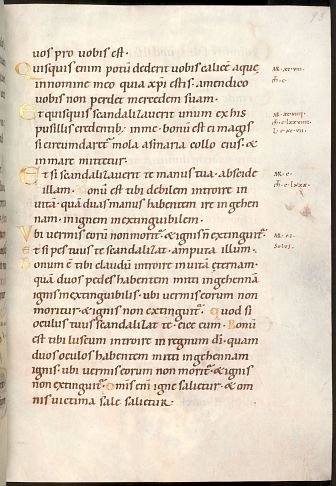 uos pro uobis est ·
Quisquis enim potũ dederit uobis calicẽ aquę
in nomine meo quia xp̃i estis · amen dico
uobis non perdet mercedem suam ·
Et quisquis scandalizauerit unum ex his
pusillis credentib; in me · bonũ est ei magis
si circumdaret mola asinaria collo eius · &
in mare mittetur ·
Et si scandalizauerit te manus tua · abscide
illam · Bonũ est tibi debilem introire in
uitã · quã duas manus habentem ire in gehen
nam · in ignem inextinguibilem ·
Vbi uermis eorũ non morit̃ · & ignis ñ extinguit̃ ·
Et si pes tuus te scandalizat · amputa illum ·
Bonum ẽ tibi claudũ introire in uitã ęternam ·
quã duos pedes habentem mitti in gehennã
ignis inextinguibilis · ubi uermis eorum non
moritur · & ignis non extinguit̃ · Quod si
oculus tuus scandalizat te · eice eum · Bonũ
est tibi luscum introire in regnum dĩ · quam
duos oculos habentem mitti in gehennam
ignis · ubi uermis eorum non morit̃ · & ignis
non extinguit̃ · Omĩs enĩ igne salietur · & om
nis uictima sale salietur ·